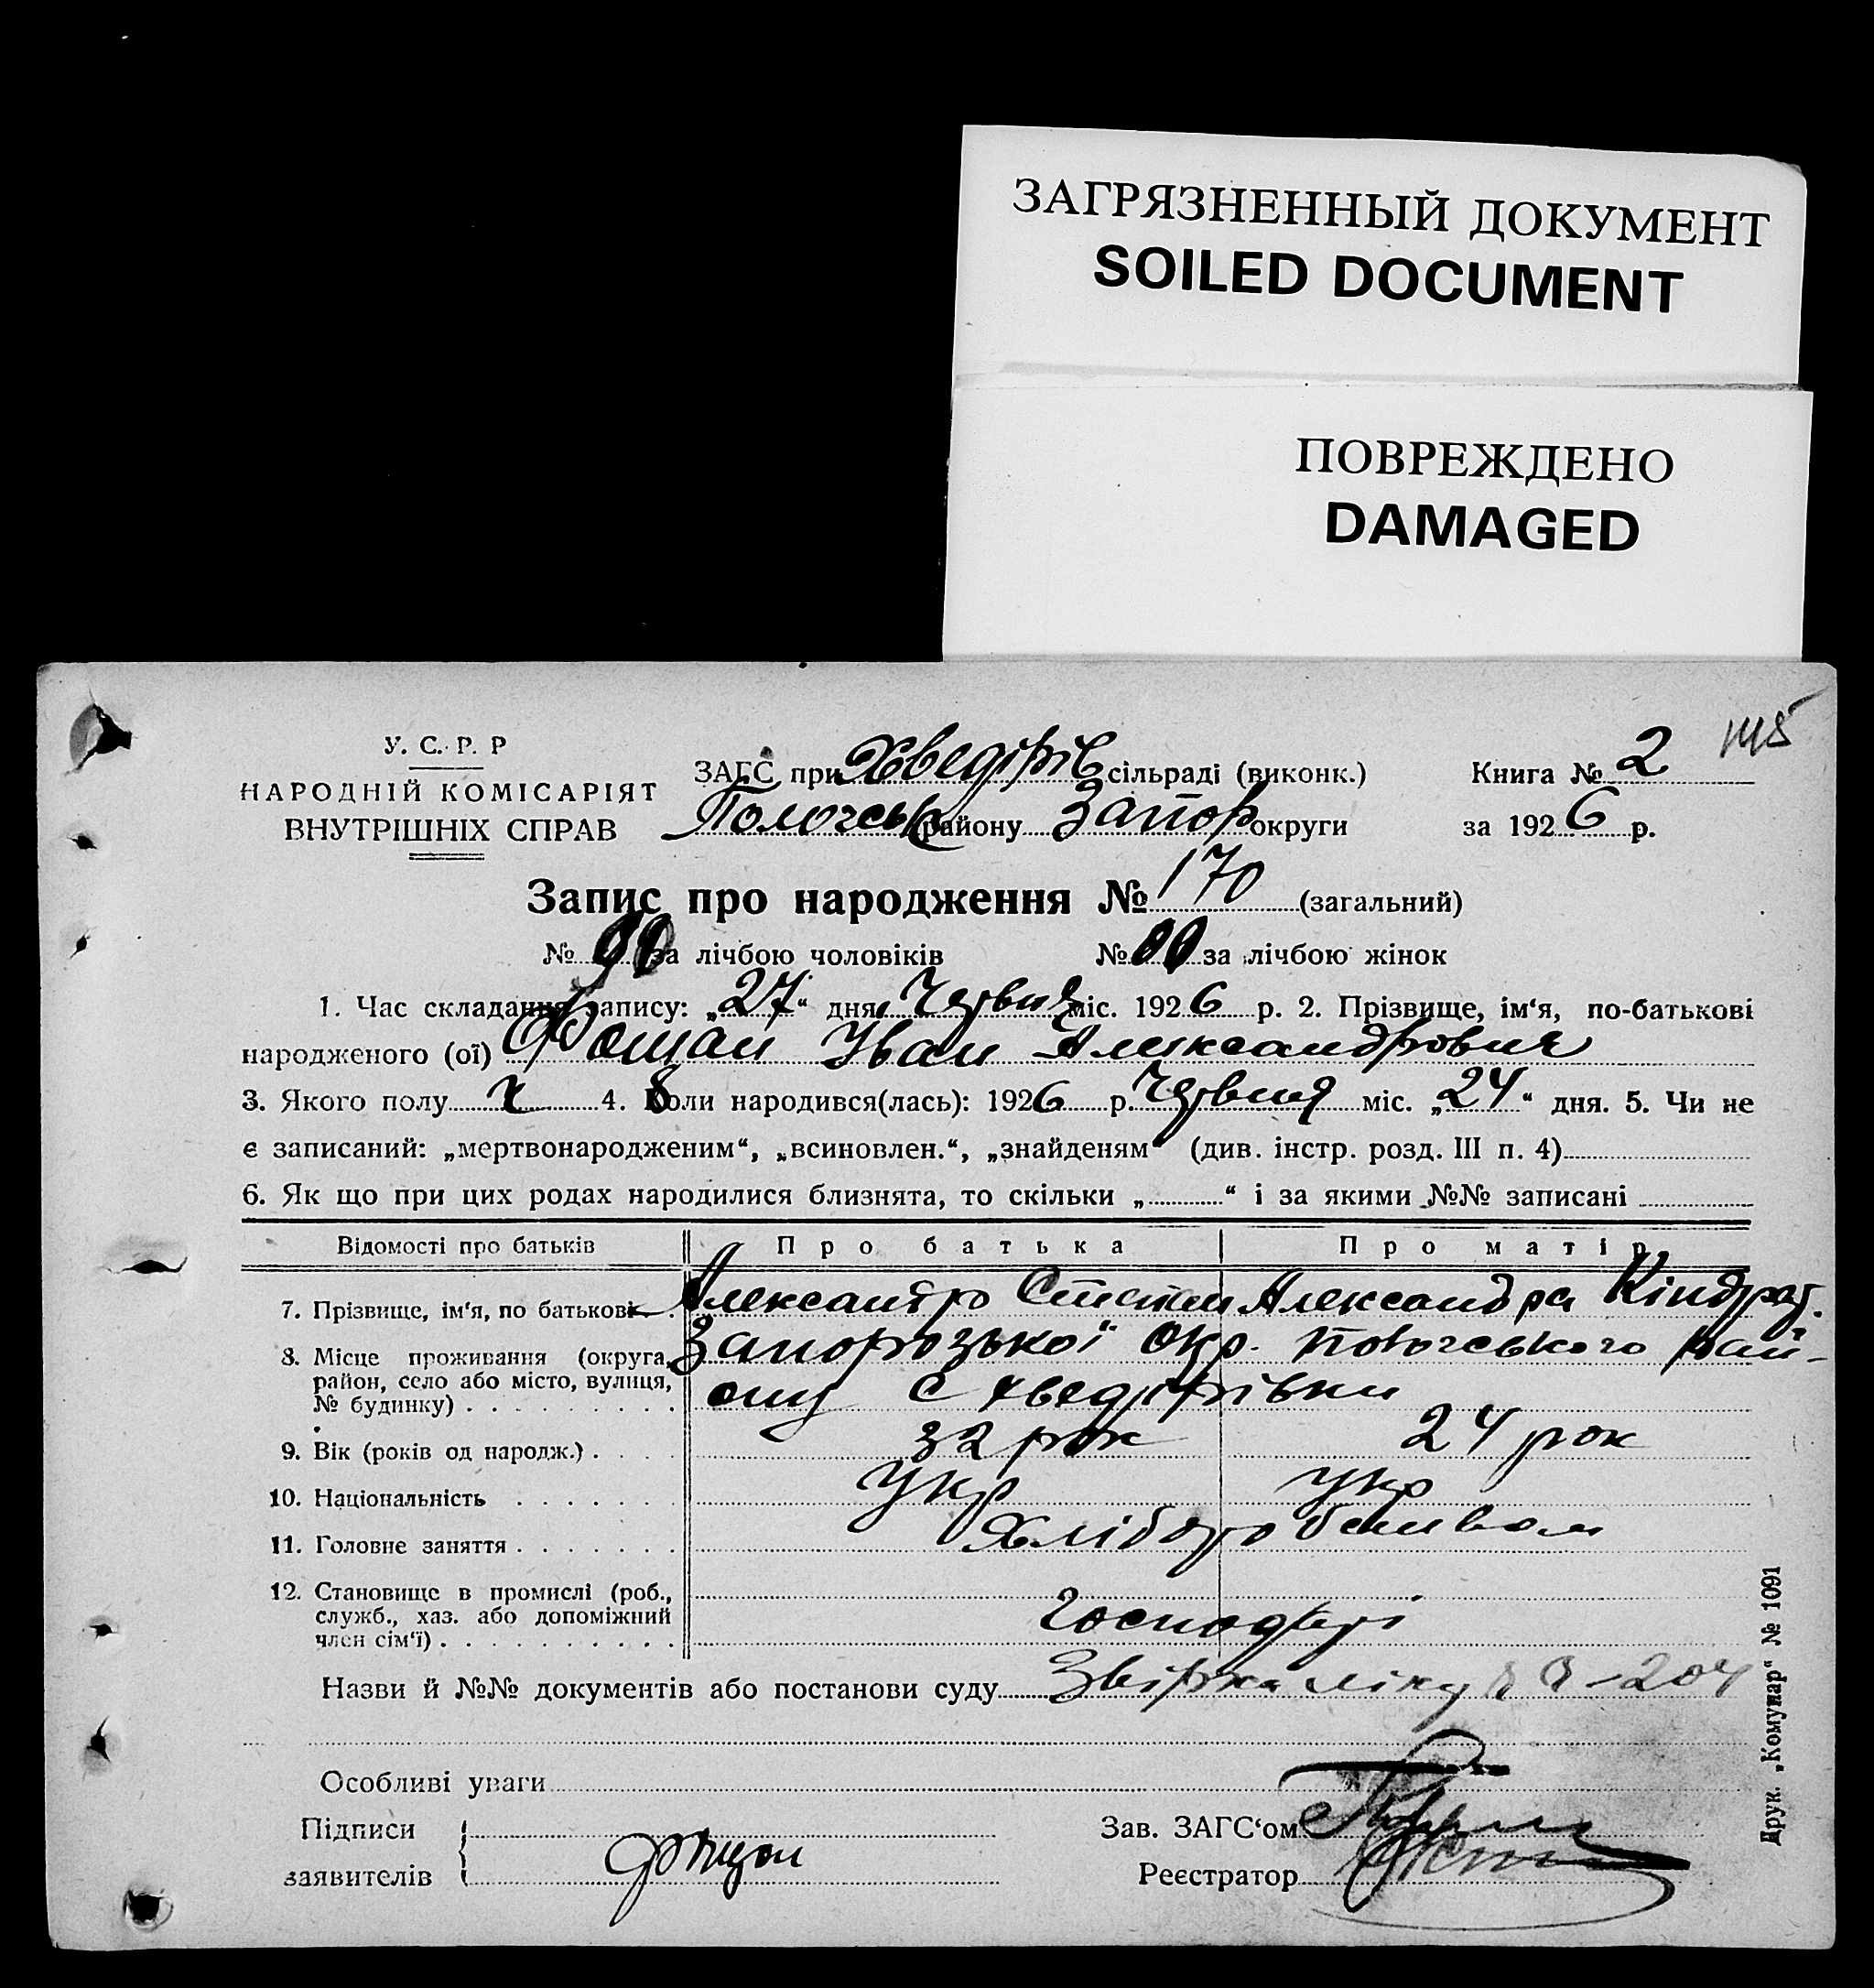 ЗАГРЯЗНЕННЫЙ ДОКУМЕНТ
SOILED DOCUMENT
ПОВРЕЖДЕНО
DAMAGED
У. С. Р. Р
НАРОДНІЙ КОМІСАРІЯТ
ВНУТРІШНІХ СПРАВ
ЗАГС при Хведірів сільраді (виконк.) Книга № 2
Пологськ району Запор округи за 1926 р.
Запис про народження № 170 (загальний)
№ за лічбою чоловіків № за лічбою жінок
1. Час складання запису: „27“ дня Червня міс. 1926 р. 2. Прізвище, ім‘я, по-батькові
народженого (ої) Фощан Іван Александрович
3. Якого полу ч 4. Коли народився(лась): 1926 р. Червня міс. „24“ дня. 5. Чи не
є записаний: „мертвонародженим“, „всиновлен.“, „знайденям“ (див. інстр. розд. III п. 4)
6. Як що при цих родах народилися близнята, то скільки „ “ і за якими №№ записані
Відомості про батьків Про батька Про матір
7. Прізвище, ім‘я, по батькові Александро Степан Александра Кіндрат.
8. Місце проживання (округа, Запорозької окр. Пологського рай-
район, село або місто, вулиця,
№ будинку) ону с Хведірівки
9. Вік (років од народж.) 32 рок 24 рок
10. Національність Укр Укр
11. Головне заняття Хліборобством
12. Становище в промислі (роб.,
служб., хаз. або допоміжний Господарі
член сім‘ї)
Назви й №№ документів або постанови суду
Особливі уваги
Підписи Зав. ЗАГС‘ом
заявителів Реєстратор
Друк. „Комунар“ № 1091